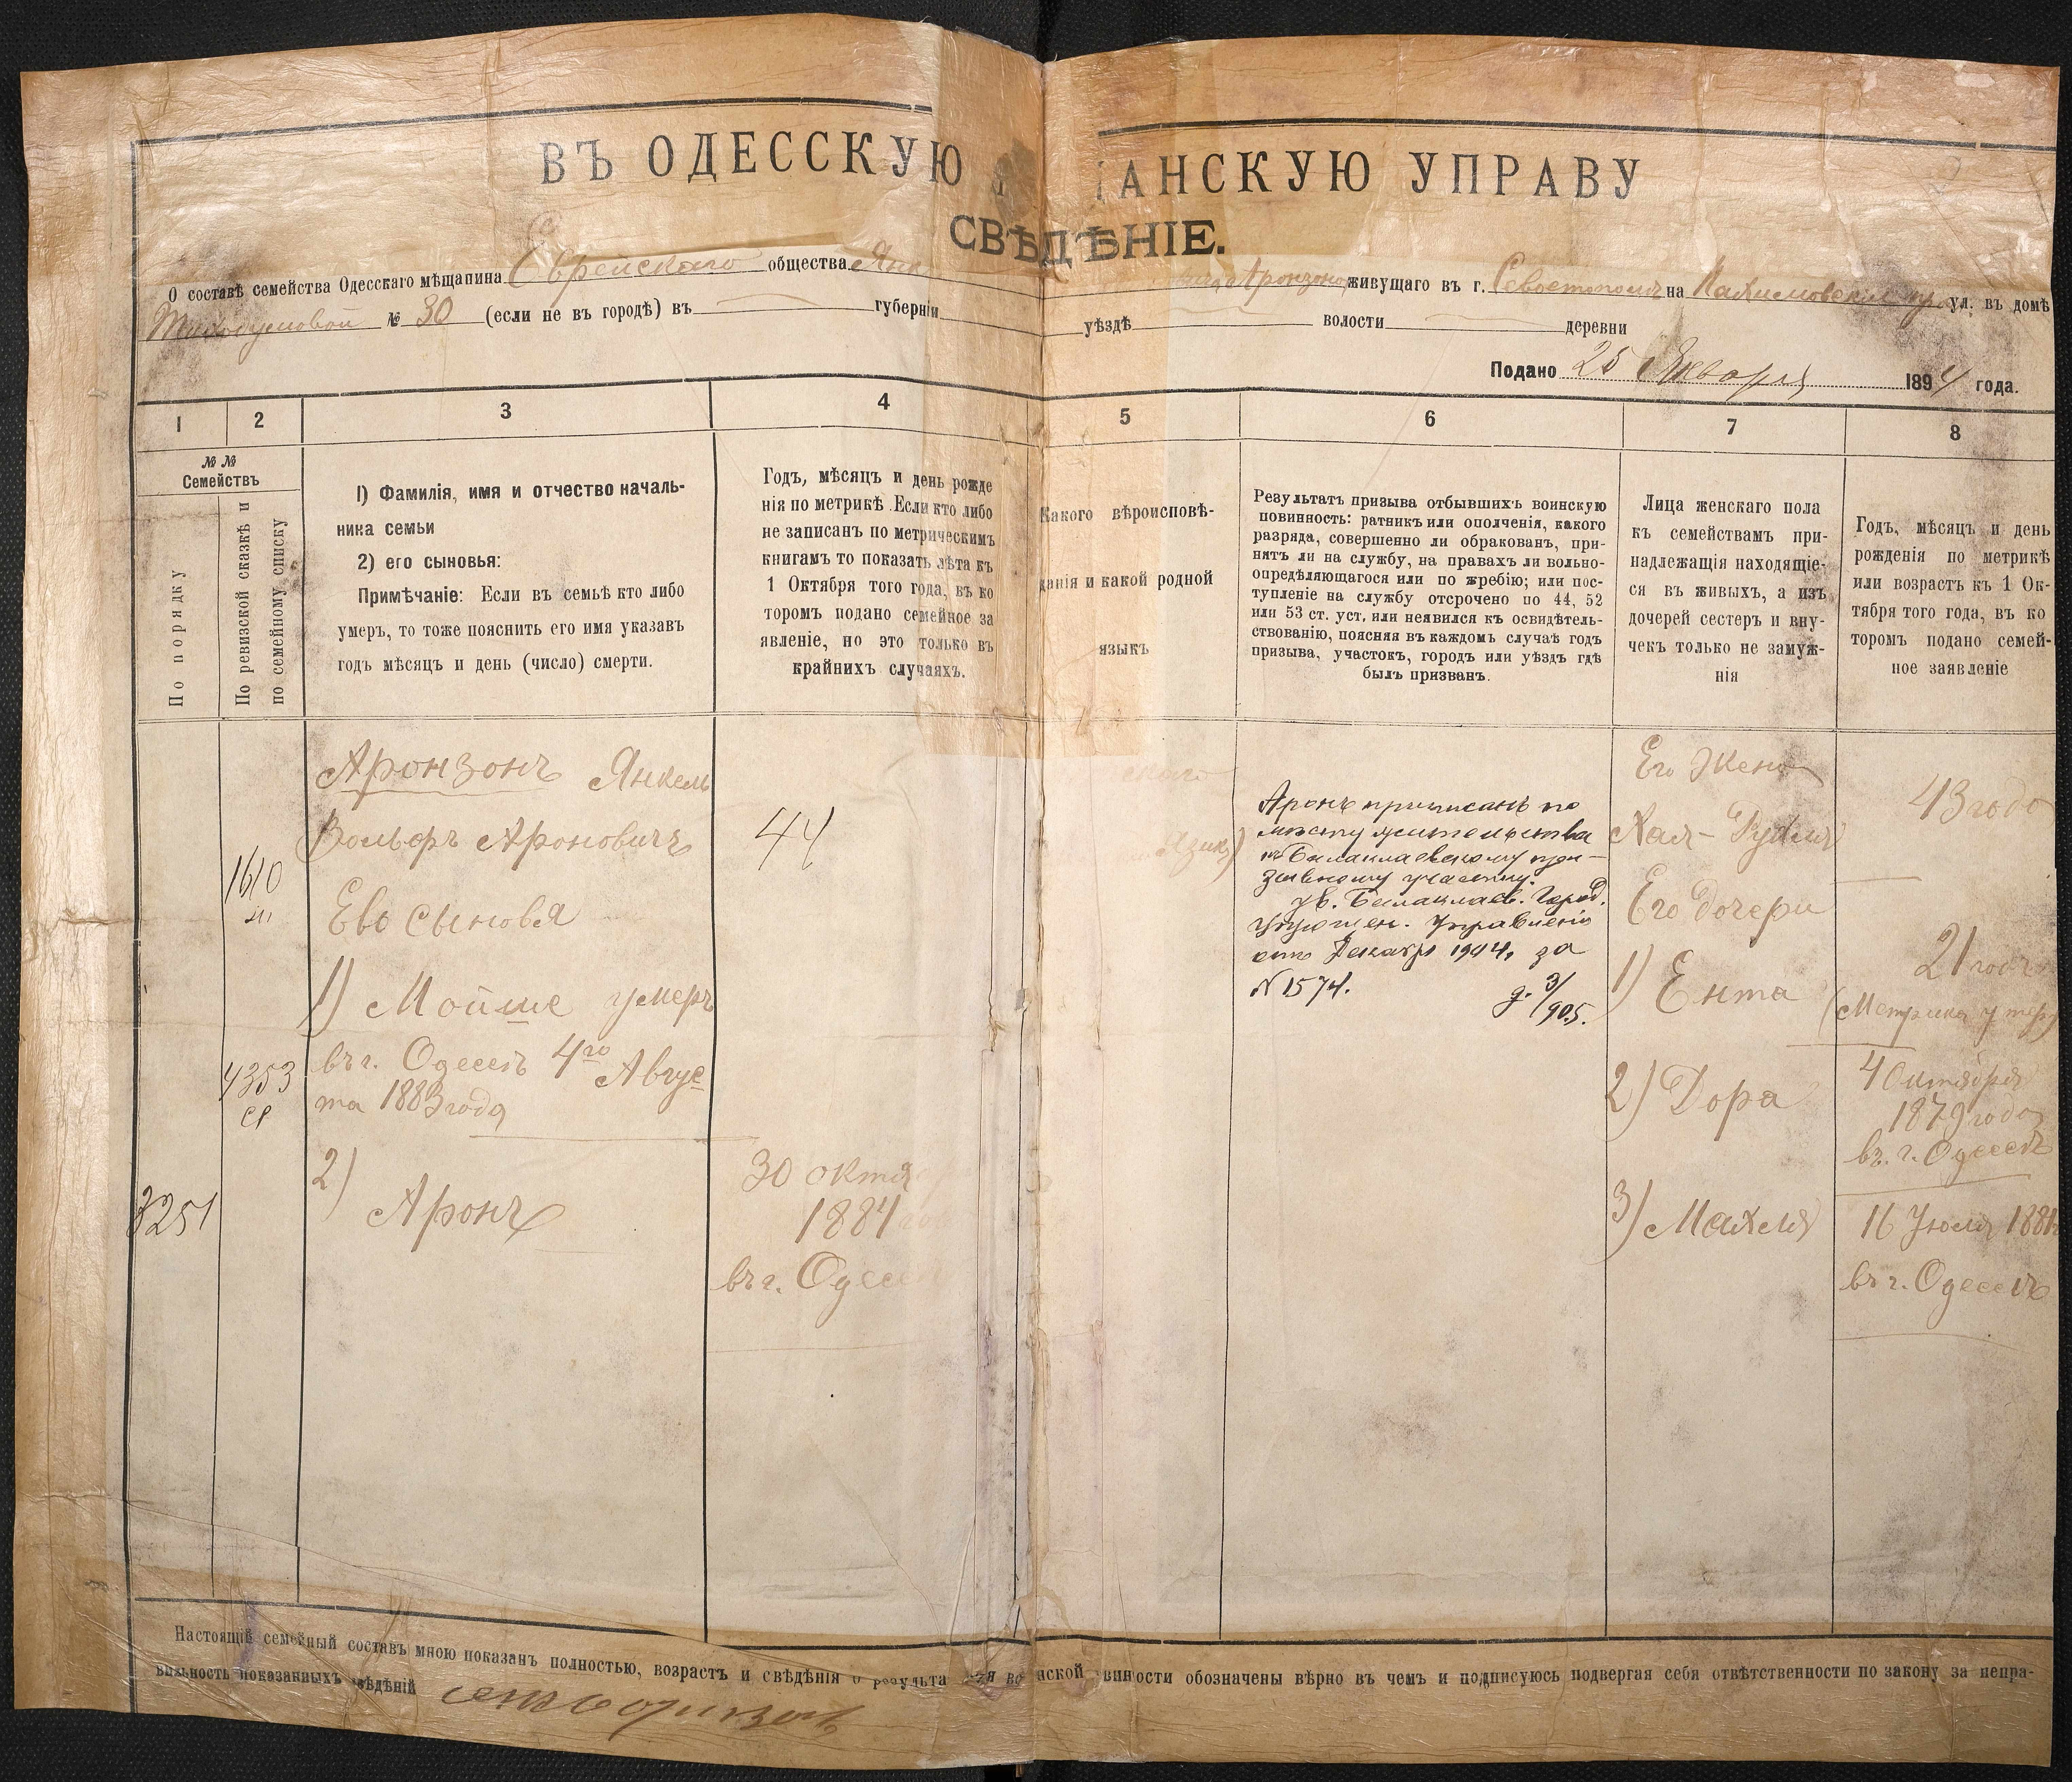 ВЪ ОДЕССКУЮ АНСКУЮ УПРАВУ
СВѢДѢНІЕ.
О составѣ семейства Одесскаго мѣщанина Еврейскаго общества Янк Аронзона живущаго въ г. Севастополѣ на Нахимовскій пр. ул. въ домѣ
№ 30 (если не въ городѣ) въ губерніи уѣздѣ волости деревни
Подано 25 Января 1894 года.
1 2 3 4 5 6 7 8
№№
Семействъ
По порядку
По ревизской сказкѣ и
по семейному списку
1) Фамилія, имя и отчество началь-
ника семьи
2) его сыновья:
Примѣчаніе: Если въ семьѣ кто либо
умеръ, то тоже пояснить его имя указавъ
годъ мѣсяцъ и день (число) смерти.
Годъ, мѣсяцъ и день рожде
нія по метрикѣ. Если кто либо
не записанъ по метрическимъ
книгамъ то показать лѣта къ
1 Октября того года, въ ко
торомъ подано семейное за
явленіе, но это только въ
крайнихъ случаяхъ.
Какого вѣроисповѣ-
данія и какой родной
языкъ
Результатъ призыва отбывшихъ воинскую
повинность: ратникъ или ополченія, какого
разряда, совершенно ли обракованъ, при-
нятъ ли на службу, на правахъ ли вольно-
опредѣляющагося или по жребію; или пос-
тупленіе на службу отсрочено по 44, 52
или 53 ст. уст. или неявился къ освидѣтель-
ствованію, поясняя въ каждомъ случаѣ годъ
призыва, участокъ, городъ или уѣздъ гдѣ
былъ призванъ.
Лица женскаго пола
къ семействамъ при-
надлежащія находящіе-
ся въ живыхъ, а изъ
дочерей сестеръ и вну-
чекъ только не замуж-
нія
Годъ, мѣсяцъ и день
рожденія по метрикѣ
или возрастъ къ 1 Ок-
тября того года, въ ко
торомъ подано семей-
ное заявленіе
1610
4353
3251
Аронзонъ Янкель
Вольфъ Ароновичъ
Ево сыновья
1) Мойше умеръ
въ г. Одессѣ 4го Авгус
та 1883 года
2)
Аронъ
44
30 октя
1884
въ г. Одесс
ского
языкъ)
Аронъ приписанъ по
мѣсту жительства
къ Балаклавскому при-
зывному участку.
ув. Балаклав. Город.
Упрощен. Управленія
отъ Декабр 1904, за
№ 1574.
3/905.
Его Жена
Хая-Рухля
Его дочери
1) Ента
2) Дора
3) Махля
43 года
21 годъ
(Метрика утер
4 Октября
1879 года
въ г. Одессѣ
16 Іюля 1881
въ г. Одессѣ
Настоящій семейный составъ мною показанъ полностью, возрастъ и свѣдѣнія о результа нской винности обозначены вѣрно въ чемъ и подписуюсь подвергая себя отвѣтственности по закону за непра-
вильность показанныхъ свѣдѣній